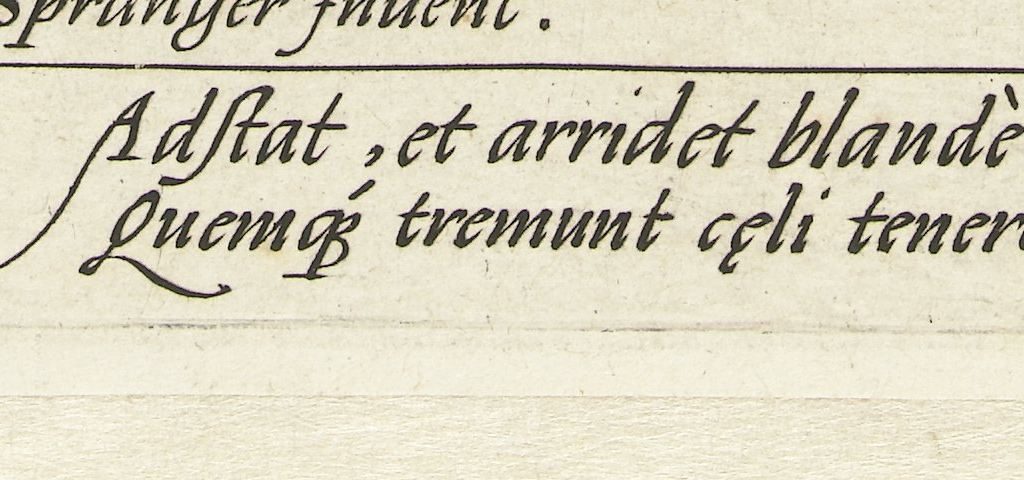 Spranger Inuent .
Adstat , et arridet blandè
Quemq́; tremunt cęli tener